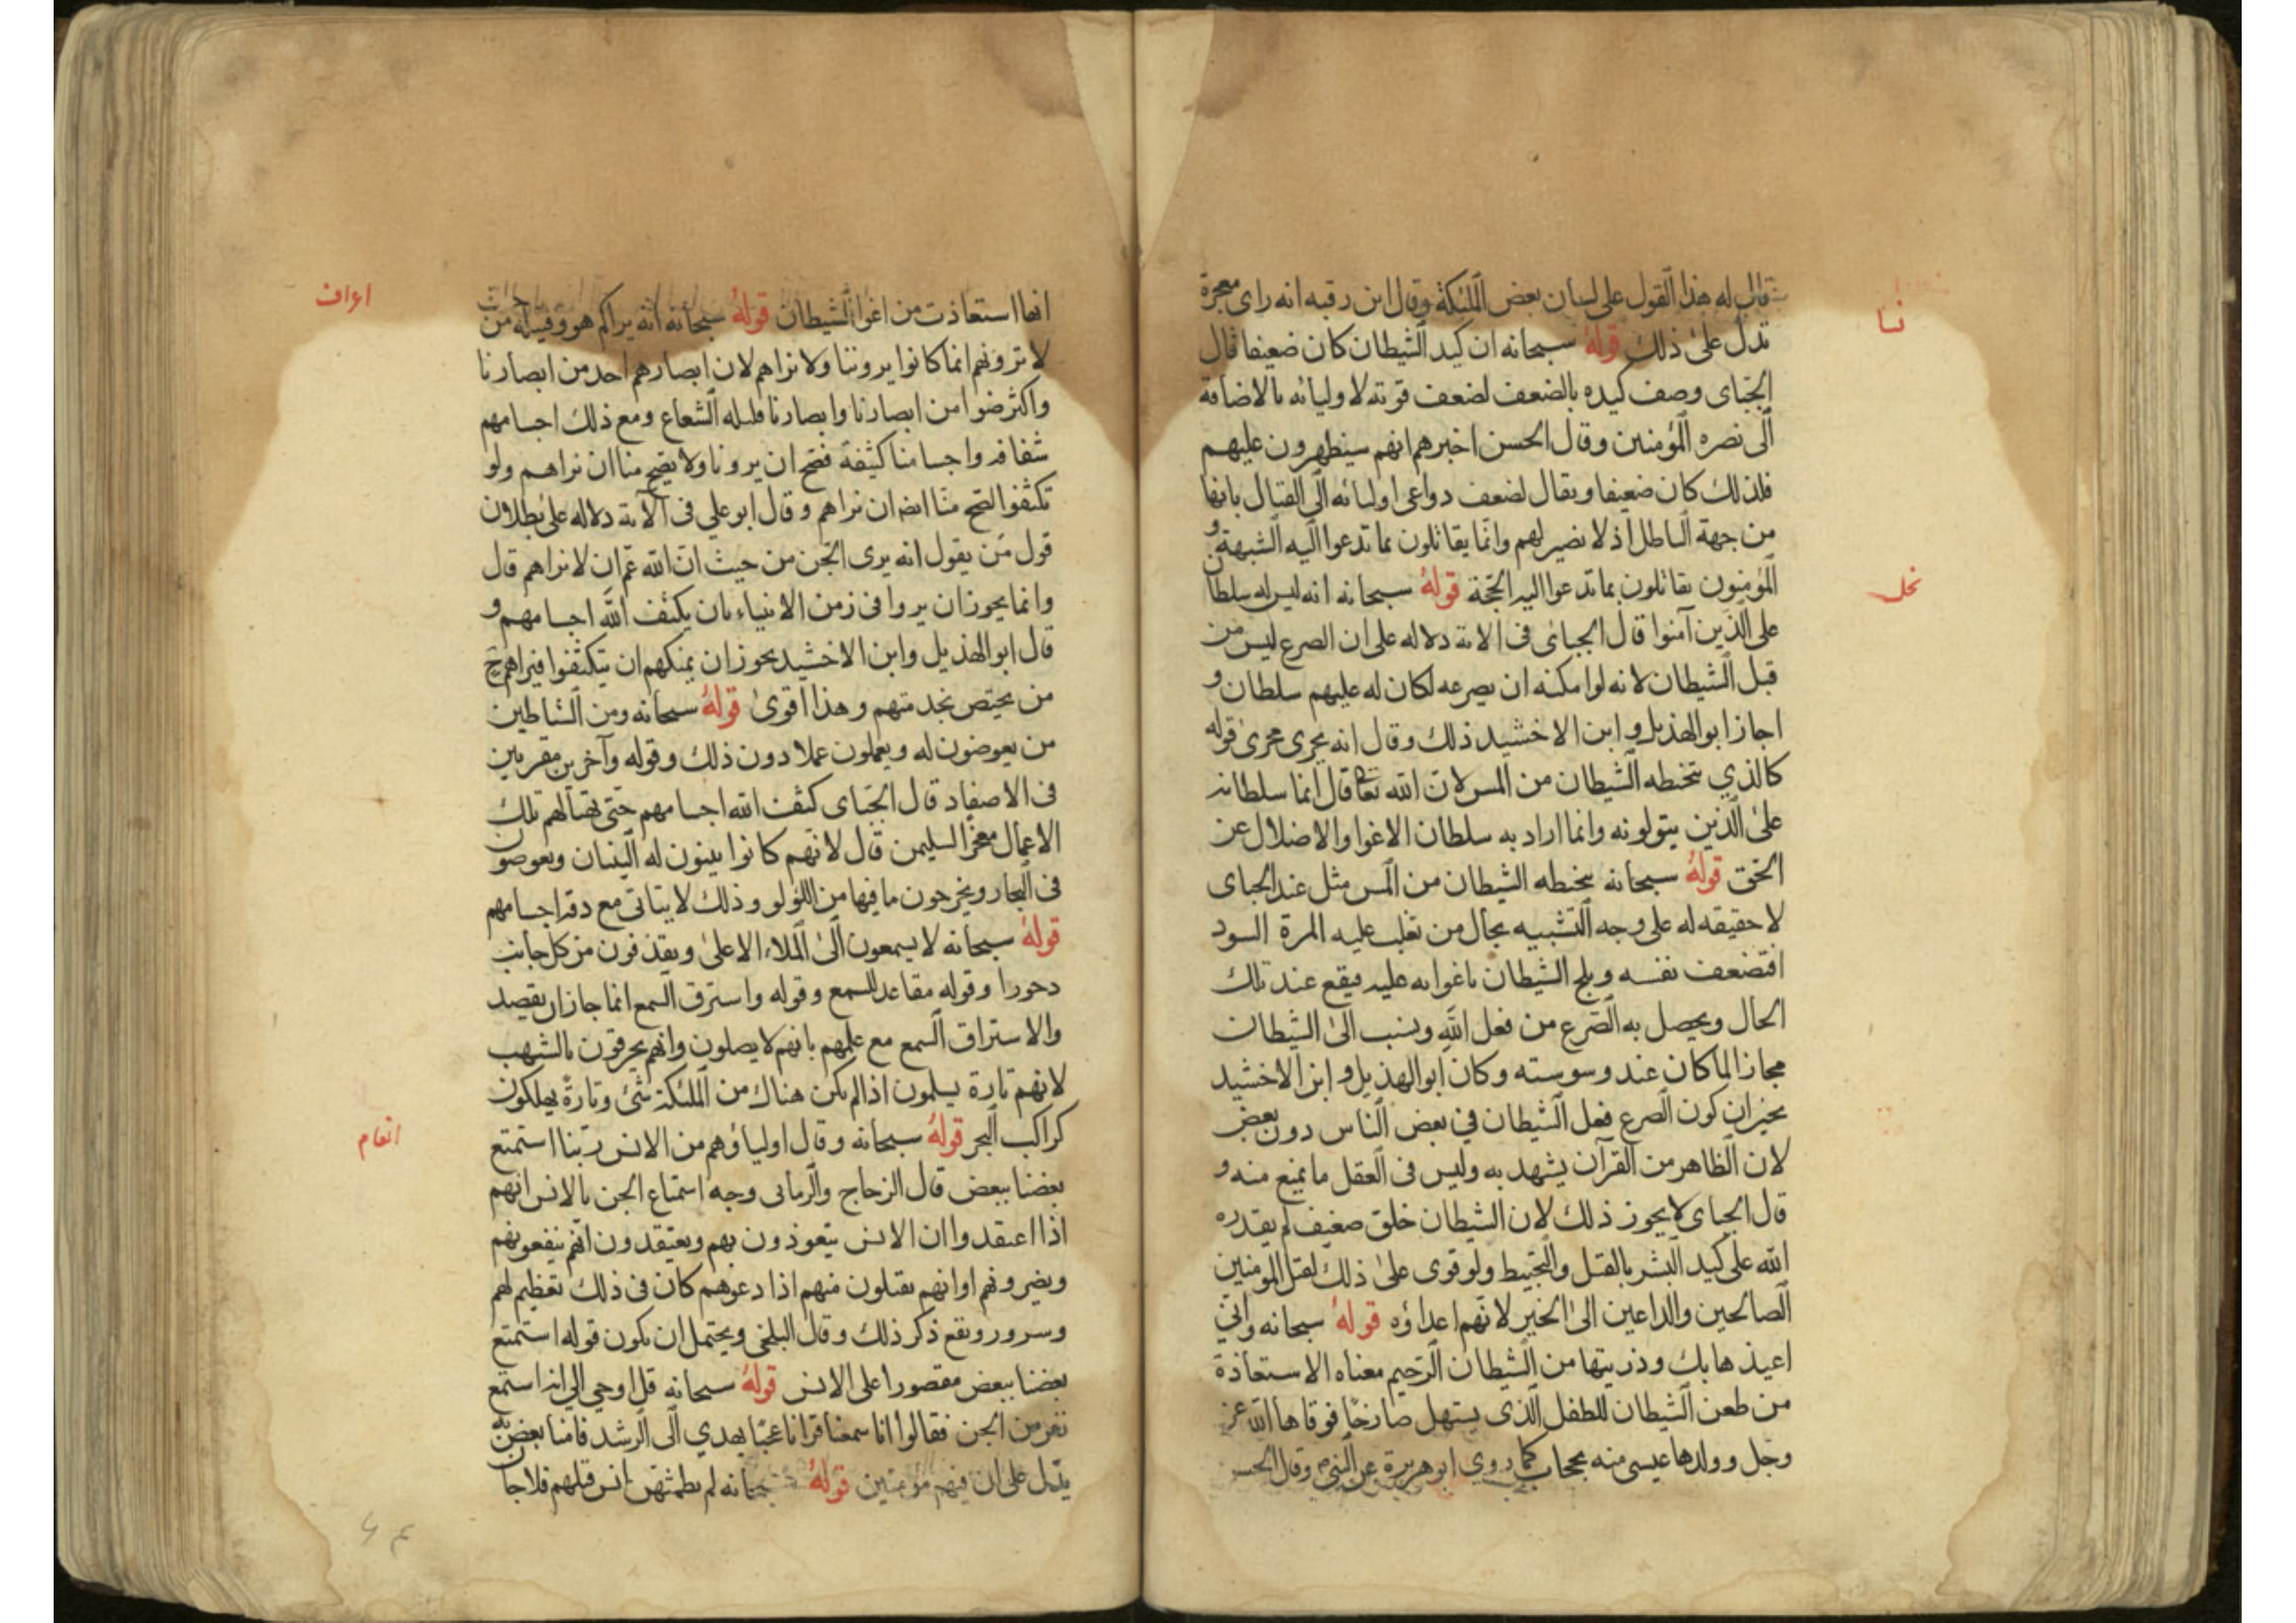 قال له هذا القول على لسان بعض الملئكة وقال ابن رقبه انه راى معجزة
نسا
تدل على ذلك قوله سبحانه ان كيد الشيطان كان ضعيفا قال
الجبای وصف كيده بالضعف لضعف قوته لاوليائه بالاضافة
الى نصره المؤمنين وقال الحسن اخبرهم انهم سيظهرون عليهم
فلذلك كان ضعيفا ويقال لضعف دواعى اوليائه الى القتال بانها
من جهة الباطل اذ لا نصير لهم وانما يقاتلون بما تدعوا اليه الشبهة و
المؤمنون يقاتلون بما تدعوا اليه الحجة قوله سبحانه انه ليس له سلطان
نحل
على الذين آمنوا قال الجبائى فى الاية دلاله على ان الصرع ليس من
قبل الشيطان لانه لو امكنه ان يصرعه لكان له عليهم سلطان و
اجاز ابو الهذيل و ابن الاخشيد ذلك وقال انه يجرى مجرى قوله
كالذي يتخبطه الشيطان من المس لان الله تعا قال انما سلطانه
على الذين يتولونه وانما اراد به سلطان الاغوا والاضلال عن
الحق قوله سبحانه يتخبطه الشيطان من المس مثل عند الجبای
لا حقيقه له على وجه التشبيه بحال من تغلب عليه المرة السود
افتضعف نفسه ويلج الشيطان باغوايه عليه فيقع عند تلك
الحال ويحصل به الصرع من فعل الله وينسب الى الشيطان
مجازا لما كان عند وسوسته وكان ابو الهذيل و ابن الاخشيد
يجيزان كون الصرع فعل الشيطان في بعض الناس دون بعض
لان الظاهر من القرآن يشهد به وليس فى العقل ما يمنع منه و
قال الجبای لا يجوز ذلك لان الشيطان خلق ضعيف لم يقدره
الله على كيد البشر بالقتل والتخبيط ولو قوى على ذلك لقتل المومنين
الصالحين والداعين الى الخير لانهم اعداؤه قوله سبحانه وانى
اعيذها بك وذريتها من الشيطان الرجيم معناه الاستعاذة
من طعن الشيطان للطفل الذى يستهل صارخا فوقاها الله عز
وجل وولدها عيسى منه بحجاب كما روي ابو هريرة عن النبي وقال الحسن
انها استعاذت من اغوا الشيطان قوله سبحانه انه يراكم هو وقبيله من
اعراف
لا ترونهم انما كانوا يروننا ولا نراهم لان ابصارهم احد من ابصارنا
واكثر ضوا من ابصارنا وابصارنا قليله الشعاع ومع ذلك اجسامهم
شفافه واجسامنا كثيفة فصح ان يرونا ولا يصح منا ان نراهم ولو
تكثفوا لصح منا ايضا ان نراهم وقال ابو علي فى الآية دلاله على بطلان
قول من يقول انه يرى الجن من حيث ان الله عم ان لا نراهم قال
وانما يجوز ان يروا فى زمن الانبياء بان يكثف الله اجسامهم و
قال ابو الهذيل وابن الاخشيد يجوز ان يمنكهم ان يتكثفوا فيراهم ح
من يختص بخدمتهم وهذا اقوى قوله سبحانه ومن الشياطين
من يغوصون له ويعملون عملا دون ذلك وقوله وآخرين مقرنين
فى الاصفاد قال الجبای كثف الله اجسامهم حتى تهيا لهم تلك
الاعمال معجزا لسليمن قال لانهم كانوا يبنون له البنيان ويغوصون
فى البحار ويخرجون ما فيها من اللؤلو وذلك لا يتاتى مع دقه اجسامهم
قوله سبحانه لا يسمعون الى الملاء الاعلى ويقذفون من كل جانب
دحورا وقوله مقاعد للسمع وقوله واسترق السمع انما جاز ان يقصد
والاستراق السمع مع علمهم بانهم لا يصلون وانهم يحرقون بالشهب
لانهم تارة يسلمون اذا لم يكن هناك من الملئكة شئ وتارة يهلكون
كراكب البحر قوله سبحانه وقال اولياؤهم من الانس ربنا استمتع
انعام
بعضنا ببعض قال الزجاج والرمانى وجه استمتاع الجن بالانس انهم
اذا اعتقدوا ان الانس يتعوذون بهم ويعتقدون انهم ينفعونهم
ويضرونهم او انهم يقبلون منهم اذا دعوهم كان فى ذلك تعظيم لهم
وسرور ونفع ذكر ذلك وقال البلخى ويحتمل ان يكون قوله استمتع
بعضنا ببعض مقصورا على الانس قوله سبحانه قل اوحي الي انه استمع
نفر من الجن فقالوا انا سمعنا قرانا عجبا يهدي الى الرشد فامنا به
يدل على ان فيهم مؤمنين قوله سبحانه لم يطمثهن انس قبلهم ولا جان